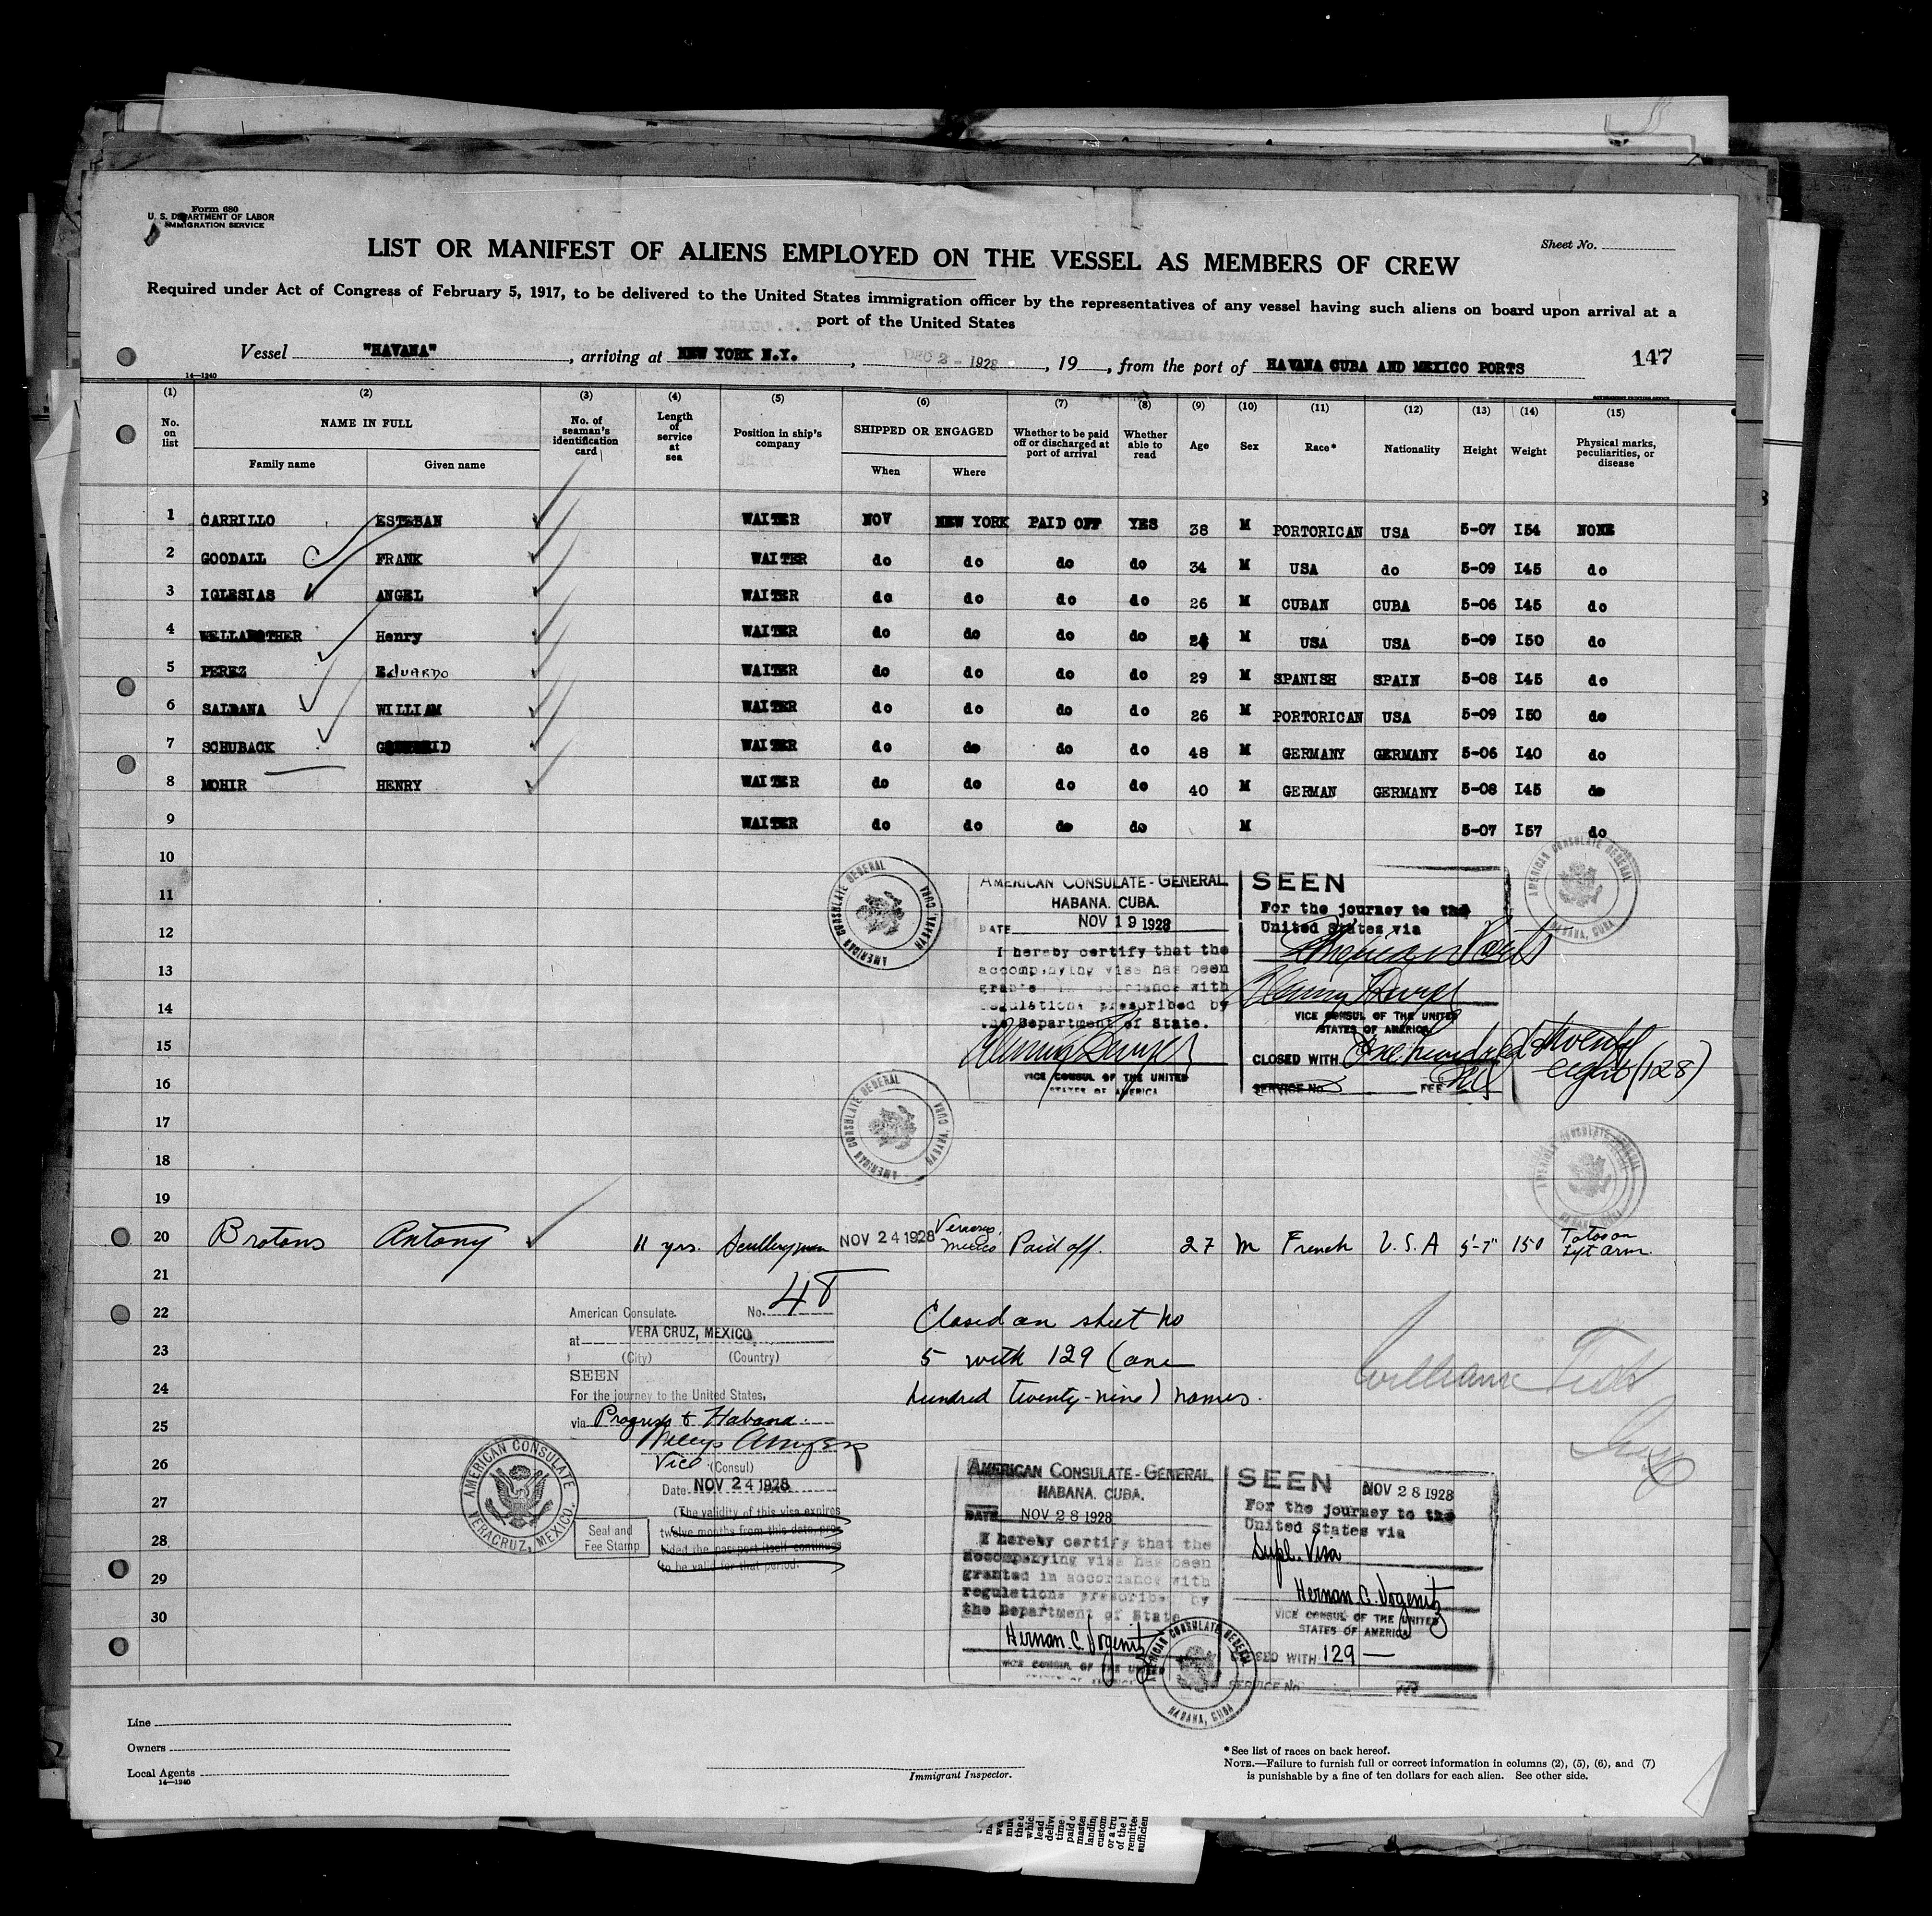 Form 680
U. S. DEPARTMENT OF LABOR
IMMIGRATION SERVICE
Sheet No.
LIST OR MANIFEST OF ALIENS EMPLOYED ON THE VESSEL AS MEMBERS OF CREW
Required under Act of Congress of February 5, 1917, to be delivered to the United States immigration officer by the representatives of any vessel having such aliens on board upon arrival at a
port of the United States
Vessel "HAVANA", arriving at NEW YORK N.Y., DEC 2 - 1928, 19, from the port of HAVANA CUBA AND MEXICO PORTS 147
14—1240
(1) (2) (3) (4) (5) (6) (7) (8) (9) (10) (11) (12) (13) (14) (15)
No. on list NAME IN FULL No. of seaman's identification card Length of service at sea Position in ship's company SHIPPED OR ENGAGED Whether to be paid off or discharged at port of arrival Whether able to read Age Sex Race* Nationality Height Weight Physical marks, peculiarities, or disease
Family name Given name When Where
1 CARRILLO ESTEBAN WAITER NOV NEW YORK PAID OFF YES 38 M PORTORICAN USA 5-07 I54 NONE
2 GOODALL FRANK WAITER do do do do 34 M USA do 5-09 I45 do
3 IGLESIAS ANGEL WAITER do do do do 26 M CUBAN CUBA 5-06 I45 do
4 Henry WAITER do do do do M USA USA 5-09 I50 do
5 PEREZ EduARDO WAITER do do do do 29 M SPANISH SPAIN 5-08 I45 do
6 SALDANA WILLIAM WAITER do do do do 26 M PORTORICAN USA 5-09 I50 do
7 SCHUBACK WAITER do do do do 48 M GERMANY GERMANY 5-06 I40 do
8 MOHIR HENRY WAITER do do do do 40 M GERMAN GERMANY 5-08 I45 do
9 WAITER do do do do M 5-07 I57 do
10
11
12
13
14
15
16
17
18
19
AMERICAN CONSULATE GENERAL HABANA, CUBA
AMERICAN CONSULATE-GENERAL
HABANA. CUBA.
DATE NOV 19 1928
I hereby certify that the
accompanying visa has been
granted in accordance with
regulations prescribed by
the Department of State.
VICE CONSUL OF THE UNITED
STATES OF AMERICA
SEEN
For the journey to the
United States via
Mexican Ports
VICE CONSUL OF THE UNITED
STATES OF AMERICA
CLOSED WITH One hundred twenty
eight (128)
SERVICE No. FEE
AMERICAN CONSULATE GENERAL HABANA, CUBA
AMERICAN CONSULATE GENERAL HABANA, CUBA
AMERICAN CONSULATE GENERAL HABANA, CUBA
20 Brotons Antony 11 yrs. Scullery man NOV 24 1928 Veracruz, Mexico Paid off. 27 M French U.S.A 5'-7" 150 Tatoo on Lyt arm.
21
22
23
24
25
26
27
28
29
30
American Consulate. No. 48
at VERA CRUZ, MEXICO
(City) (Country)
SEEN
For the journey to the United States,
via Progreso & Habana.
Vice (Consul)
Date NOV 24 1928
(The validity of this visa expires
twelve months from this date, pro-
vided the passport itself continues
to be valid for that period.
Seal and
Fee Stamp
AMERICAN CONSULATE VERACRUZ, MEXICO.
Closed on sheet no
5 with 129 (one
hundred twenty-nine) names.
AMERICAN CONSULATE-GENERAL
HABANA. CUBA.
DATE NOV 28 1928
I hereby certify that the
accompanying visa has been
granted in accordance with
regulations prescribed by
the Department of State
Hernan C. Vogenitz
VICE CONSUL OF THE UNITED
STATES OF AMERICA
SEEN NOV 28 1928
For the journey to the
United States via
Supl. Visa
Hernan C. Vogenitz
VICE CONSUL OF THE UNITED
STATES OF AMERICA
CLOSED WITH 129 —
SERVICE No. FEE
AMERICAN CONSULATE GENERAL HABANA, CUBA
Line
Owners
Local Agents
14—1240
Immigrant Inspector.
*See list of races on back hereof.
NOTE.—Failure to furnish full or correct information in columns (2), (5), (6), and (7)
is punishable by a fine of ten dollars for each alien. See other side.